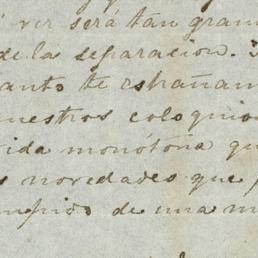 ver será tan gran
de la separacion.
anto te estrañam
nuestros coloquio
ida monótona qu
s novedades que
de una m